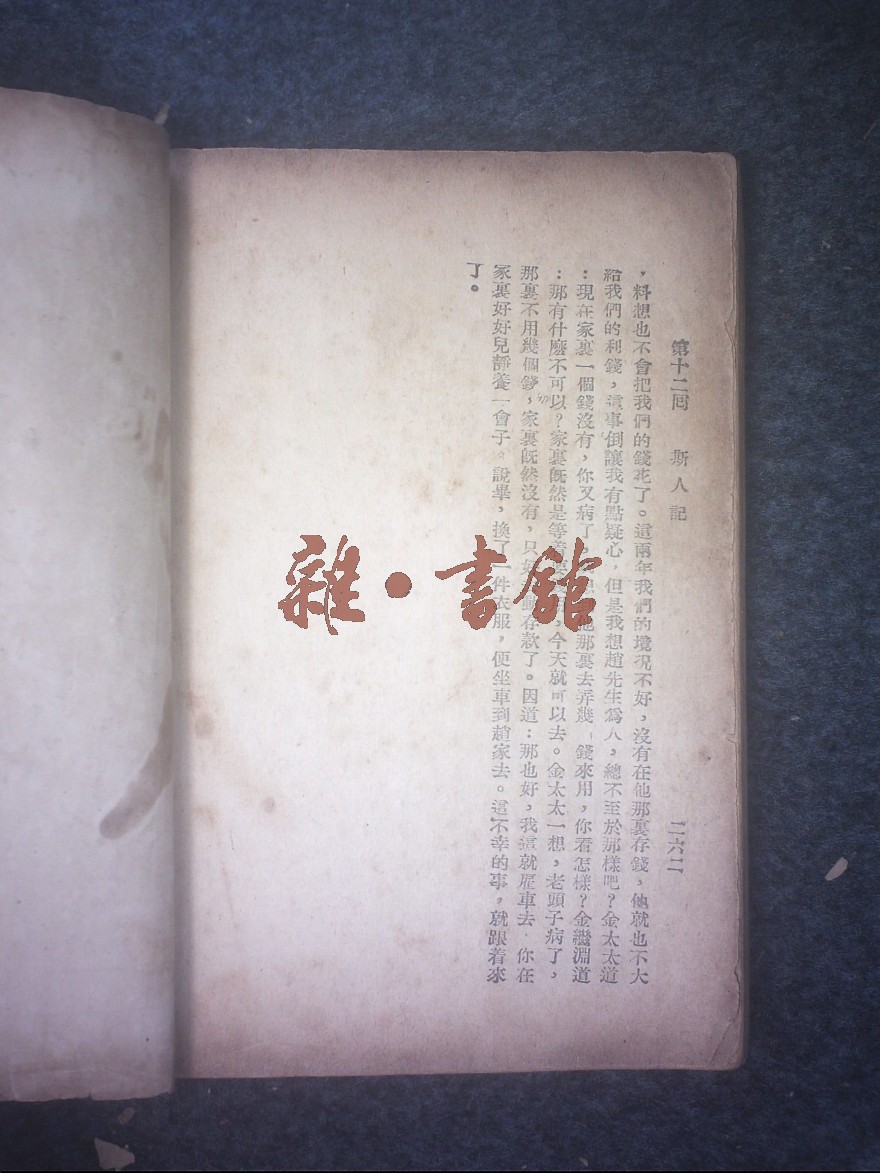 第十二回 斯人記 二六二
，料想也不會把我們的錢花了。這兩年我們的境况不好，沒有在他那裏存錢，他就也不大
給我們的利錢，這事倒讓我有點疑心，但是我想趙先生爲人，總不至於那樣吧？金太太道
：現在家裏一個錢沒有，你又病了 他那裏去弄幾 錢來用，你看怎樣？金繼淵道
：那有什麽不可以？家裏旣然是等着 ，今天就可以去。金太太一想，老頭子病了，
那裏不用幾個錢，家裏旣然沒有，只 存款了。因道：那也好，我這就雇車去 你在
家裏好好兒靜養一會子。說畢，換了一件衣服，便坐車到趙家去。這不幸的事，就跟着來
了。
雜·書館